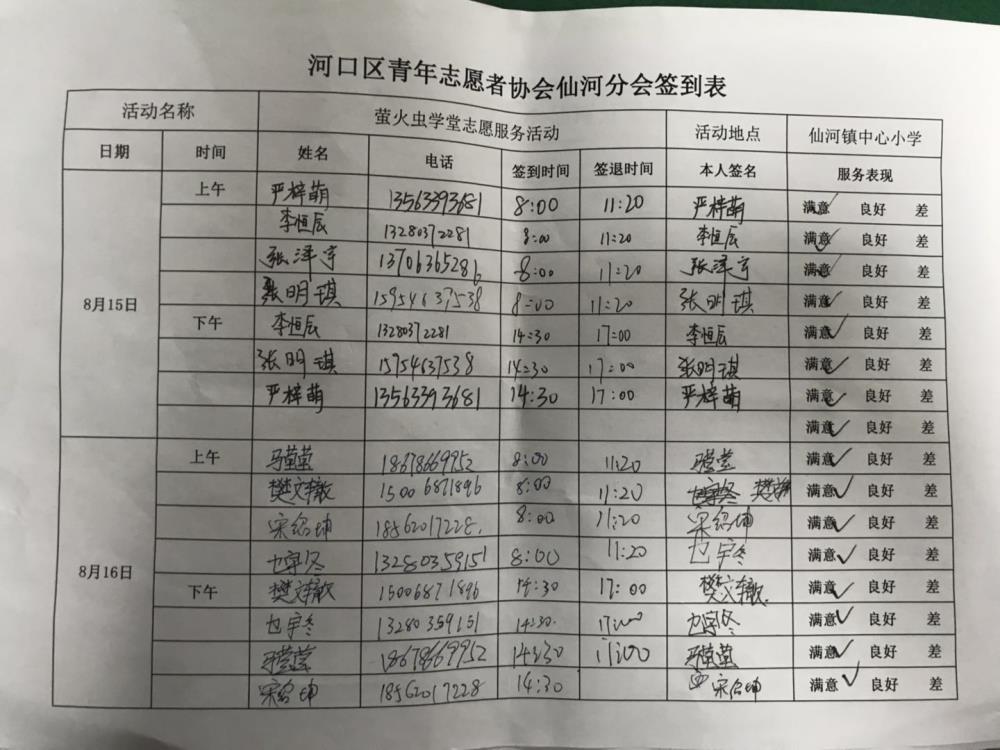 河口区青年志愿者协会仙河分会签到表
活动名称 萤火虫学堂志愿服务活动 活动地点 仙河镇中心小学
日期 时间 姓名 电话 签到时间 签退时间 本人签名 服务表现
8月15日 上午 严梓萌 13563393681 8:00 11:20 严梓萌 满意 良好 差
李恒辰 13280372281 8:00 11:20 李恒辰 满意 良好 差
张泽宇 13706365286 8:00 11:20 张泽宇 满意 良好 差
张明琪 15954637538 8:00 11:20 张明琪 满意 良好 差
下午 李恒辰 13280372281 14:30 17:00 李恒辰 满意 良好 差
张明琪 15954637538 14:30 17:00 张明琪 满意 良好 差
严梓萌 13563393681 14:30 17:00 严梓萌 满意 良好 差
满意 良好 差
8月16日 上午 马莹莹 18678669952 8:00 11:20 马莹莹 满意 良好 差
樊文辙 15006871896 8:00 11:20 樊文辙 满意 良好 差
宋绍坤 18562017228 8:00 11:20 宋绍坤 满意 良好 差
宇冬 13280359151 8:00 11:20 宇冬 满意 良好 差
下午 樊文辙 15006871896 14:30 17:00 樊文辙 满意 良好 差
宇冬 13280359151 14:30 17:00 宇冬 满意 良好 差
马莹莹 18678669952 14:30 17:00 马莹莹 满意 良好 差
宋绍坤 18562017228 14:30 宋绍坤 满意 良好 差